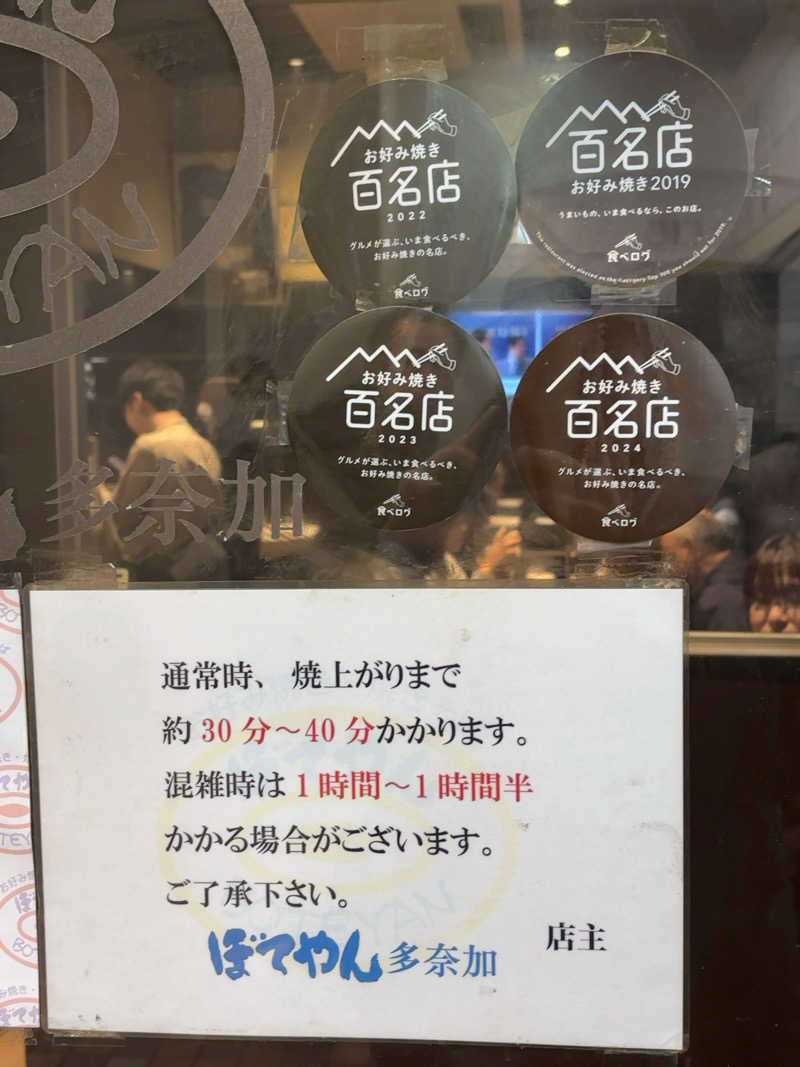 お好み焼き
百名店
2022
グルメが選ぶ、いま食べるべき、
お好み焼きの名店。
食べログ
百名店
お好み焼き2019
うまいもの、いま食べるなら、このお店。
食べログ
お好み焼き
百名店
2023
グルメが選ぶ、いま食べるべき、
お好み焼きの名店。
食べログ
お好み焼き
百名店
2024
グルメが選ぶ、いま食べるべき、
お好み焼きの名店。
食べログ
YAN
多奈加
通常時、焼上がりまで
約30分～40分かかります。
混雑時は1時間～1時間半
かかる場合がございます。
ご了承下さい。
店主
ぼてやん多奈加